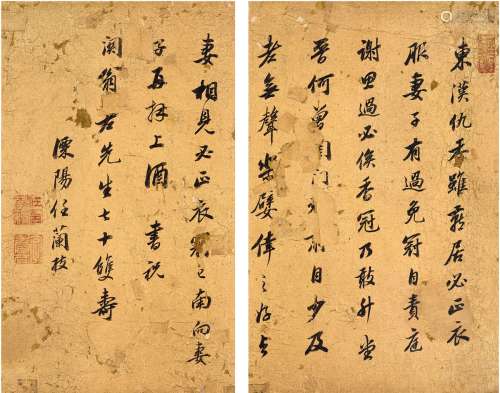 東漢仇香雖宴居必正衣
服妻子有過免冠自責庭
謝思過必俟香冠乃敢升堂
晉何曾閨門 自少及
老無聲樂嬖倖之好與
妻相見必正衣冠己南向妻
子再拜上酒 書祝
翁 老先生七十雙壽
溧陽任蘭枝